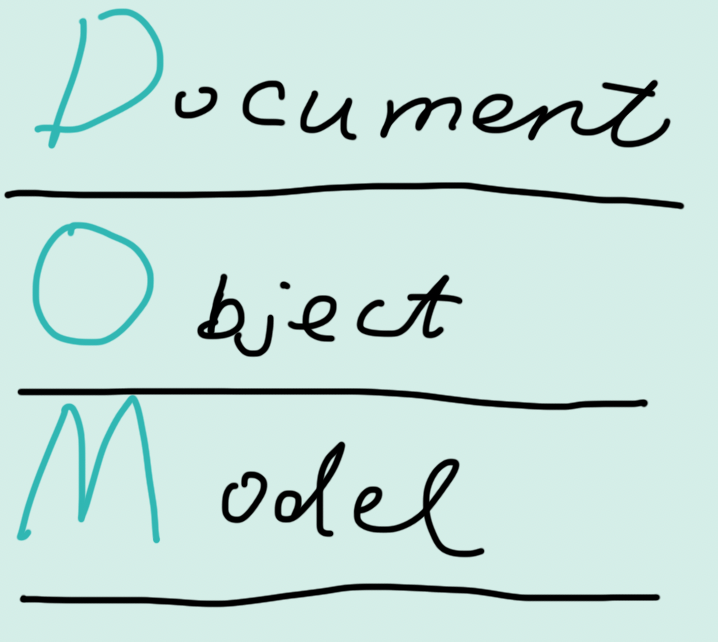 Document
Object
Model